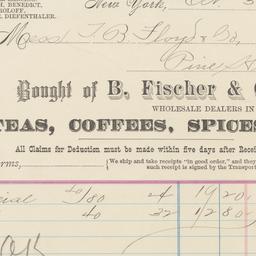 M. BENEDICT.
ROLOFF.
R. DIEFENTHALER.
New York, Oct. 3
Mess T. B. Floyd & Co.
Pine
Bought of B. Fischer & C
WHOLESALE DEALERS IN
TEAS, COFFEES, SPICES
All Claims for Deduction must be made within five days after Recei
erms, {We ship and take receipts "in good order," and they
such receipt is signed by the Transport
cial 40/80 24 19 20
40 32 12 80
OK